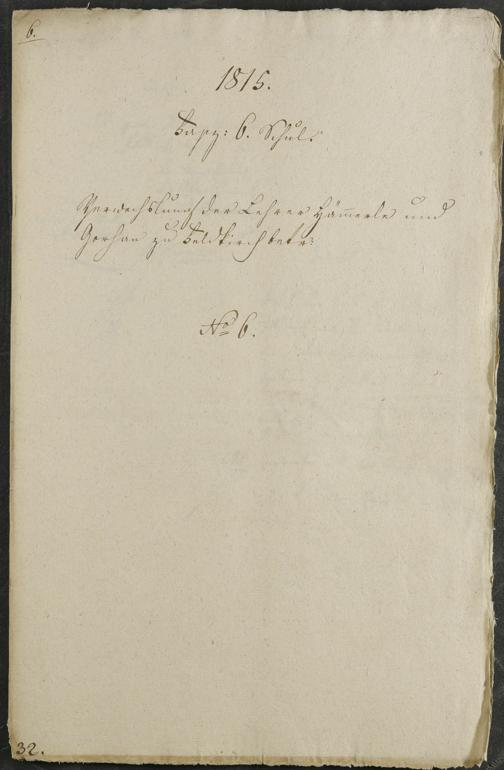 6.
1815.
Fasz: 6. Schul.
Verwechslung der Lehrer Hämerle und
Gorhan zu Feldkirch betr:
No 6.
32.